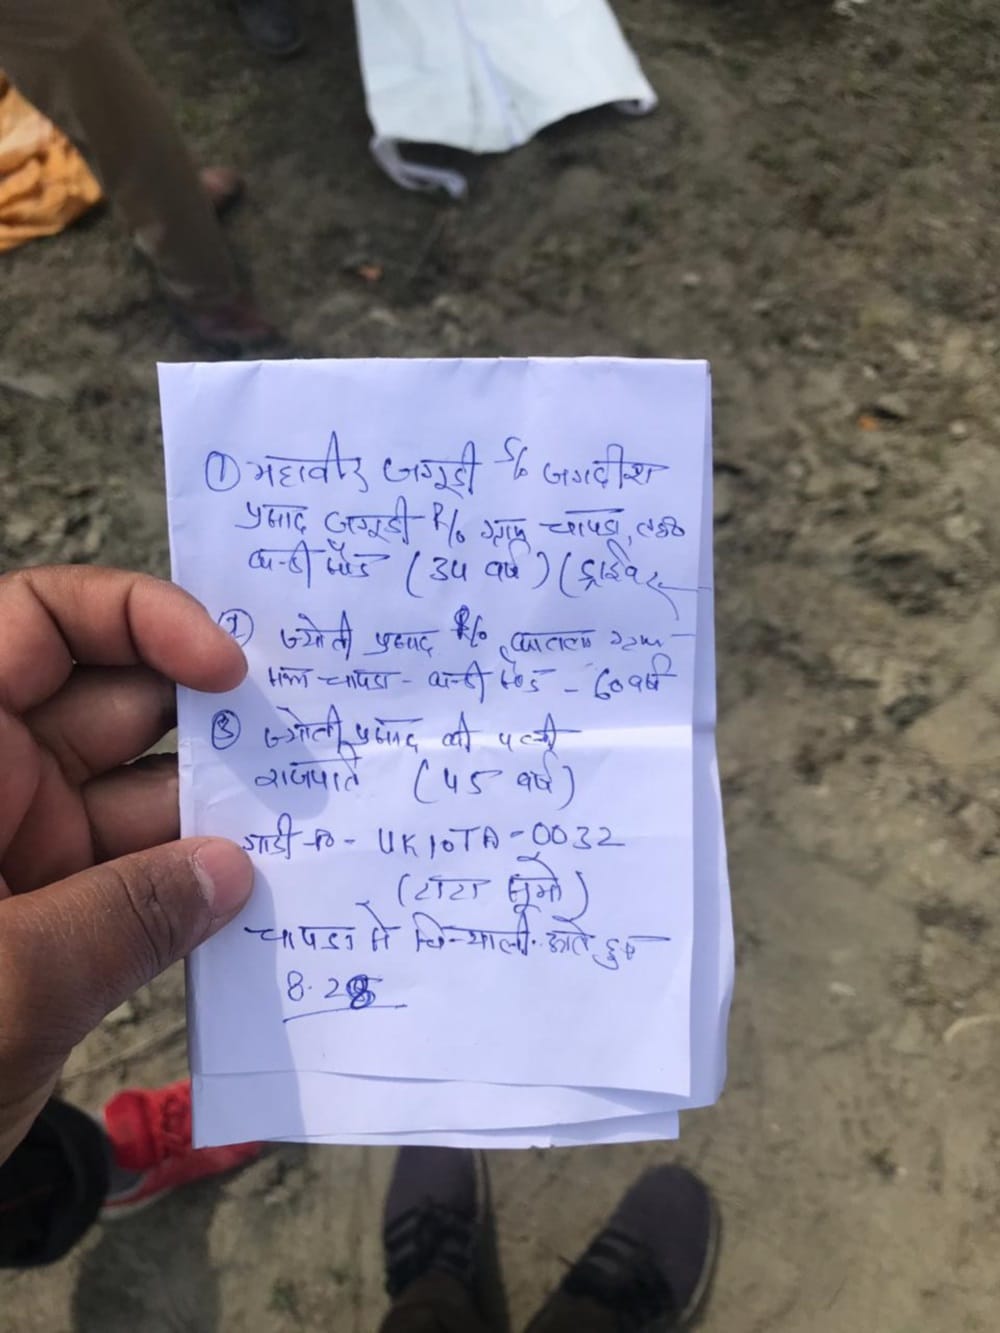 ① महावीर जगूडी S/o जगदीश
प्रसाद जगूडी R/o ग्राम चापडा,
कन्डीसौड (34 वर्ष) (ड्राईवर
② ज्योती प्रसाद R/o
चापडा - कन्डीसौड - 60 वर्ष
③ ज्योती प्रसाद की पत्नी
राजपति (45 वर्ष)
गाडी न0 - UK10TA-0032
(टाटा सूमो)
चापडा से चिन्याली. आते हुए
8.28